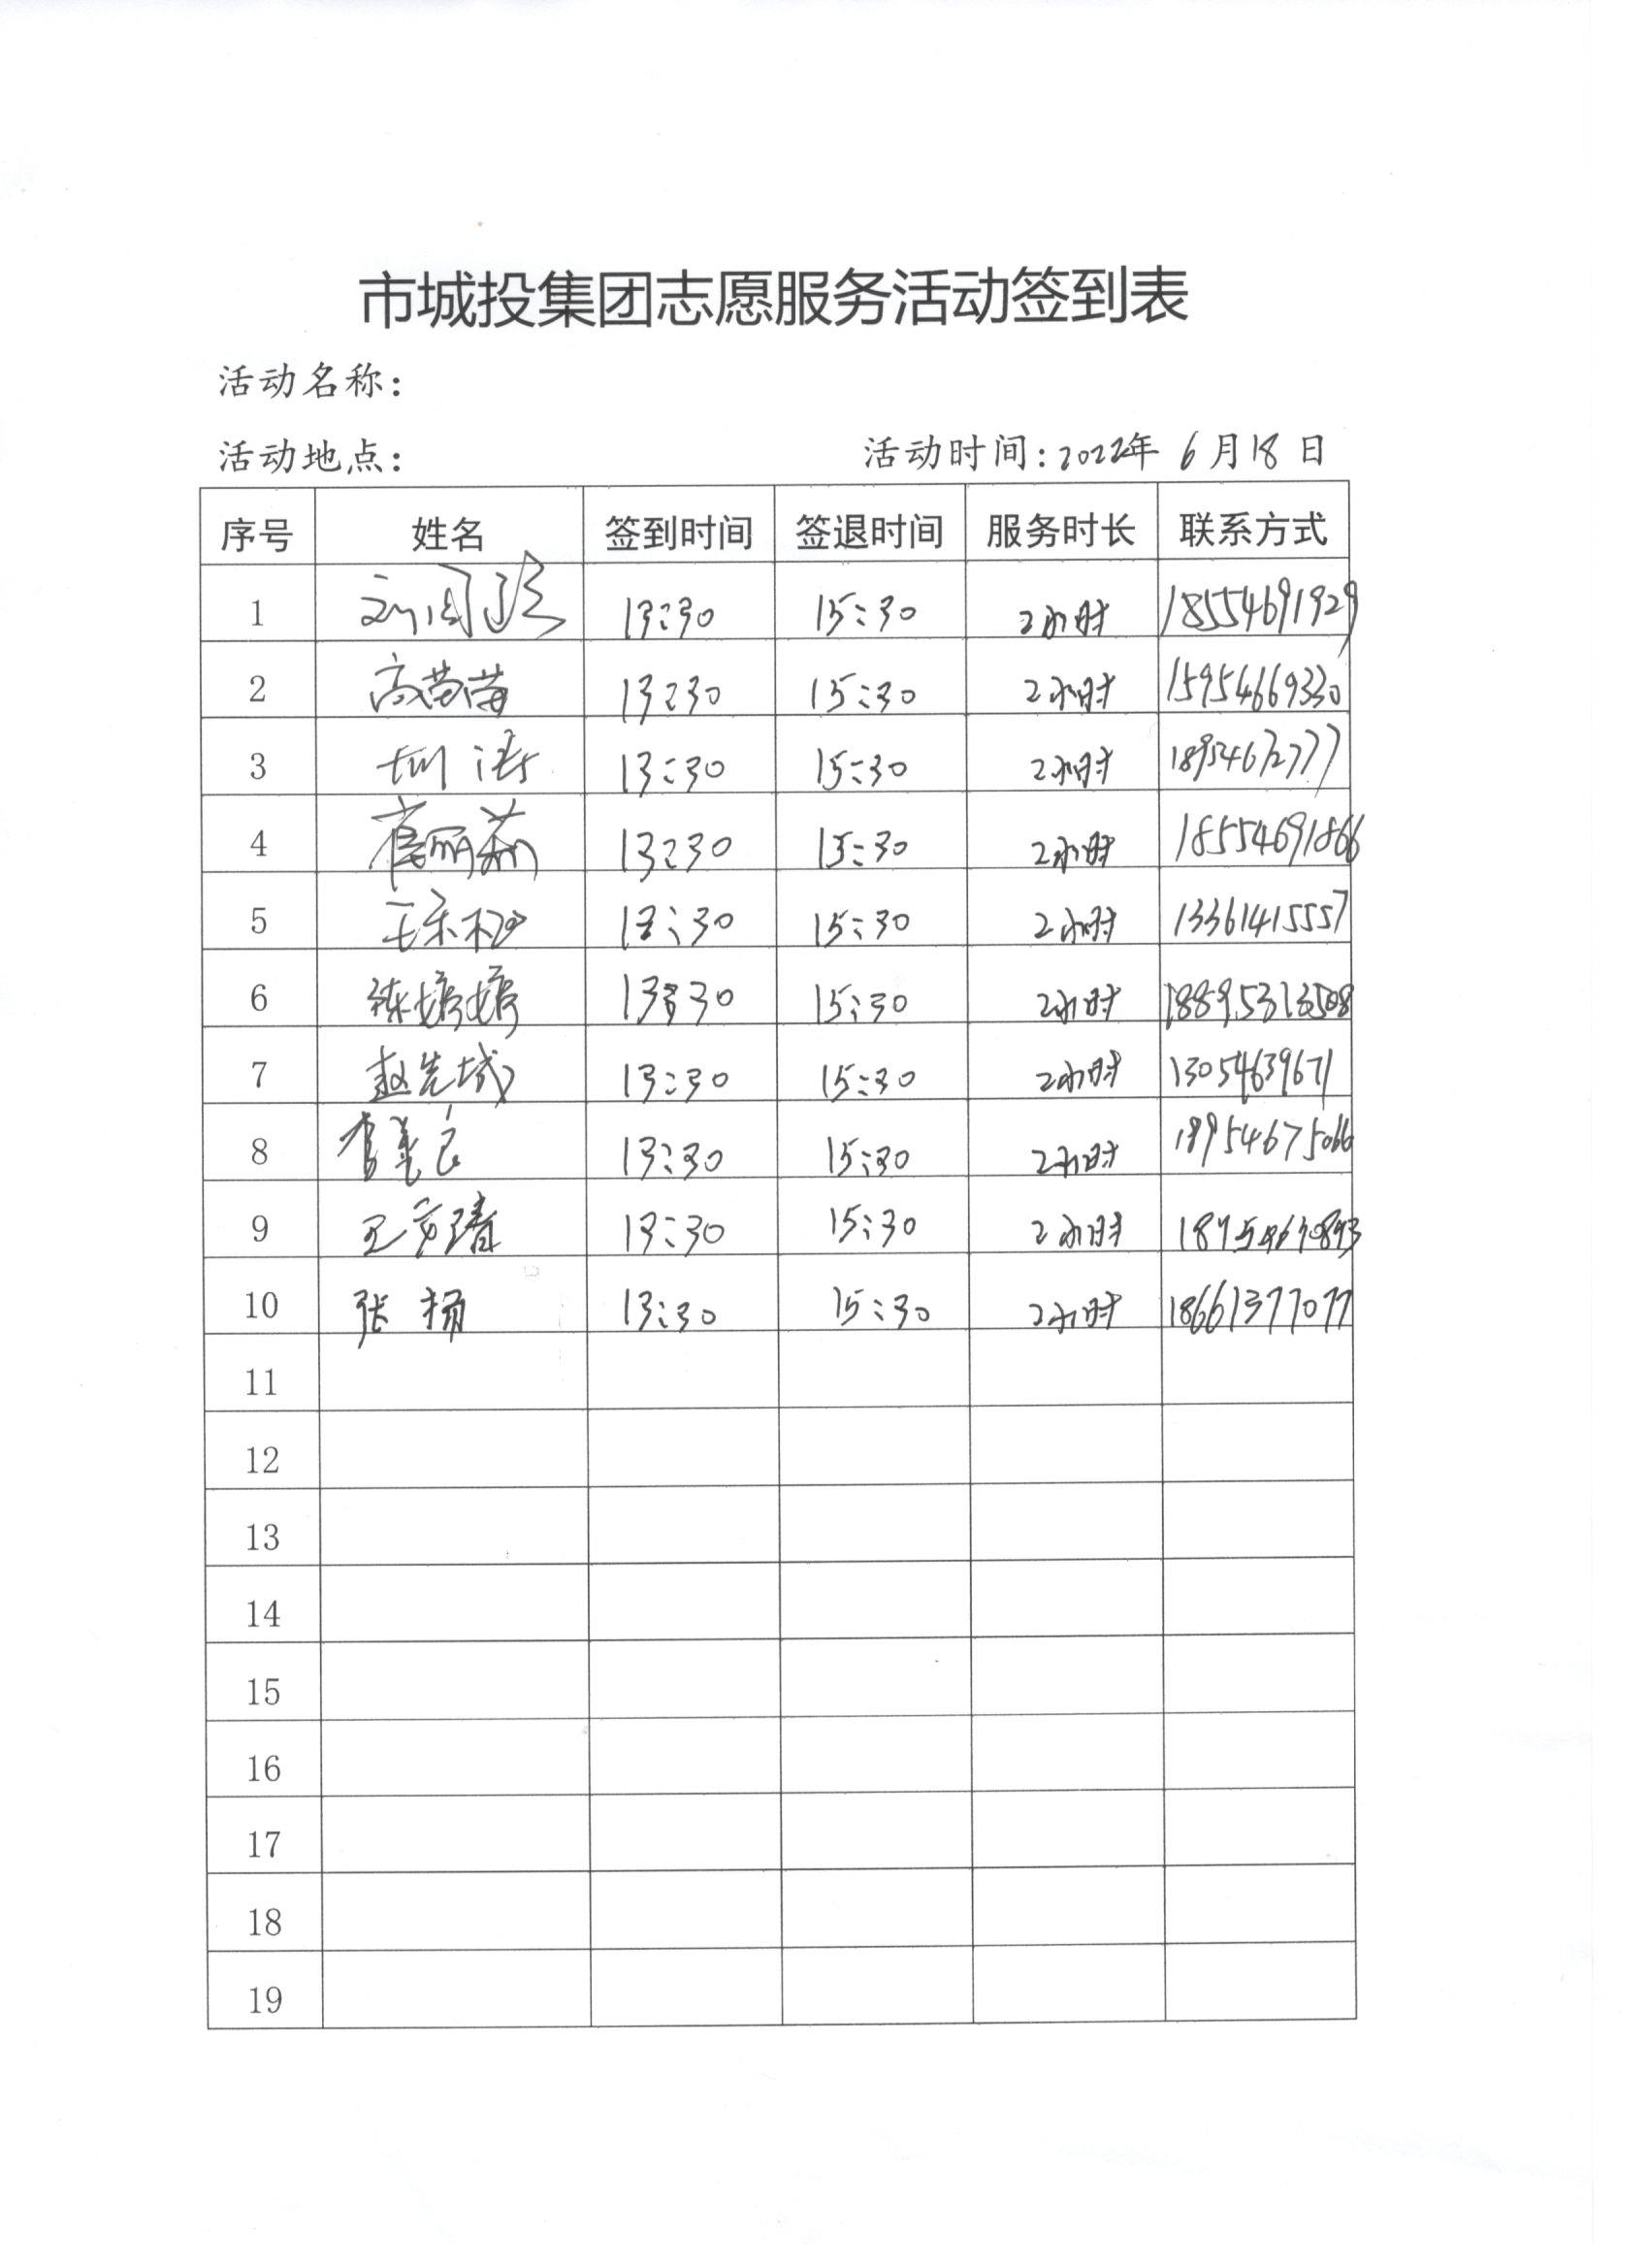 市城投集团志愿服务活动签到表
活动名称：
活动地点： 活动时间：2022年 6月18日
序号 姓名 签到时间 签退时间 服务时长 联系方式
1 13:30 15:30 2小时 18554691929
2 高苗苗 13:30 15:30 2小时 15954669330
3 13:30 15:30 2小时 18954672777
4 13:30 15:30 2小时 18554691866
5 13:30 15:30 2小时 13361415557
6 13:30 15:30 2小时 18895313508
7 赵先城 13:30 15:30 2小时
8 13:30 15:30 2小时 18954675066
9 13:30 15:30 2小时
10 张扬 13:30 15:30 2小时 18661377077
11
12
13
14
15
16
17
18
19